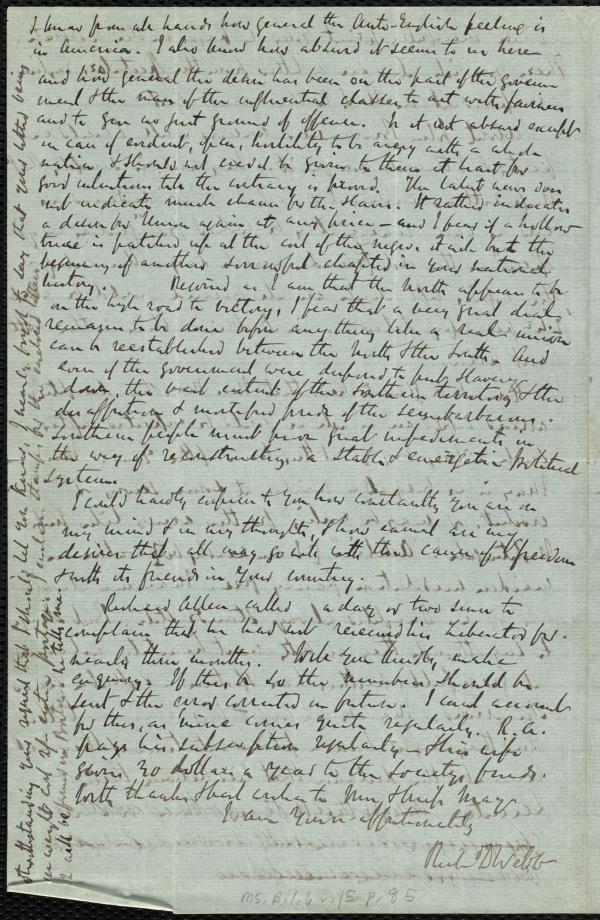 I know from all hands how general the Anti-English feeling is
in America. I also know how absurd it seems to us here
and how general the desire has been on the part of the govern
ment & the mass of the influential classes to act with fairness
and to give no just ground of offence. Is it not absurd except
in case of evident, open, hostility to be angry with a whole
nation, & should not credit be given to them at least for
good intentions till the contrary is proved. The latest news does
not indicate much chance for the slaves. It rather indicates
a desire for Union again at any price - and I fear if a hollow
truce is patched up at the cost of the negro it will be the
beginning of another sorrowful chapter in your national
history. Rejoiced as I am that the North appears to be
on the high road to victory, I fear that a very great deal
remains to be done before anything like a real union
can be reestablished between the North & the South. And
even if the government were disposed to put slavery
down, the vast extent of the Southern territory & the
disaffection & mortified pride of the semibarbarous
Southern people must prove great impediments in
the way of reconstructing a stable & energetic Political
system.
I could hardly express to you how constantly you are in
my mind & in my thoughts, & how earnest are my
desires that all may go well with the cause of freedom
& with its friends in your country.
Richard Allen called a day or two since to
complain that he had not received his Liberator for
nearly three months. Will you kindly make
enquiry. If this be so the numbers should be
sent & the error corrected in future. I can't account
for this, as mine comes quite regularly. R. A.
pays his subscription regularly - & his wife
gives 30 dollars a year to the Society's funds.
With thanks & best wishes to Mrs & Miss May
I am Yours affectionately
Rich D Webb
Notwithstanding your request that I should let you know, I nearly forgot to say that your letter being
over weight cost extra postage
he tells me
Ms. B.1.6 v.15 p. 85